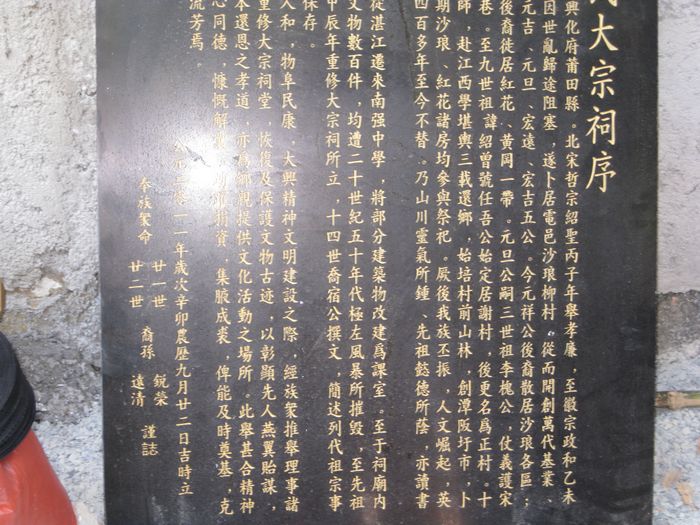 氏大宗祠序
興化府莆田縣。北宋哲宗紹聖丙子年舉孝廉，至徽宗政和乙未
因世亂歸途阻塞，遂卜居電邑沙琅柳村，從而開創萬代基業、
元吉、元旦、宏遠、宏吉五公。今元祥公後裔散居沙琅各區；
後裔徙居紅花、黃岡一帶。元旦公嗣三世祖李槐公，仗義護宋
巷。至九世祖諱紹曾號任吾公始定居謝村，後更名爲正村。十
師，赴江西學堪輿三載還鄉，始培村前山林，創潭阪圩市，卜
期沙琅、紅花諸房均參與祭祀。厥後我族丕振，人文崛起，英
四百多年至今不替。乃山川靈氣所鍾、先祖懿德所蔭，亦讀書
從湛江遷來南强中學，將部分建築物改建爲課室。至于祠廟内
文物數百件，均遭二十世紀五十年代極左風暴所摧毁，至先祖
甲辰年重修大宗祠所立，十四世喬宿公撰文，簡述列代祖宗事
保存。
人和，物阜民康，大興精神文明建設之際，經族衆推舉理事諸
重修大宗祠堂，恢復及保護文物古迹，以彰顯先人燕翼貽謀，
本還恩之孝道，亦爲鄉親提供文化活動之場所。此舉甚合精神
心同德，慷慨解囊，勇躍捐資，集腋成裘，俾能及時奠基，克
流芳焉。
公元二零一一年歲次辛卯農歷九月廿二日吉時立
奉族衆命 廿一世 裔孫 銳榮 謹誌
廿二世 遠清